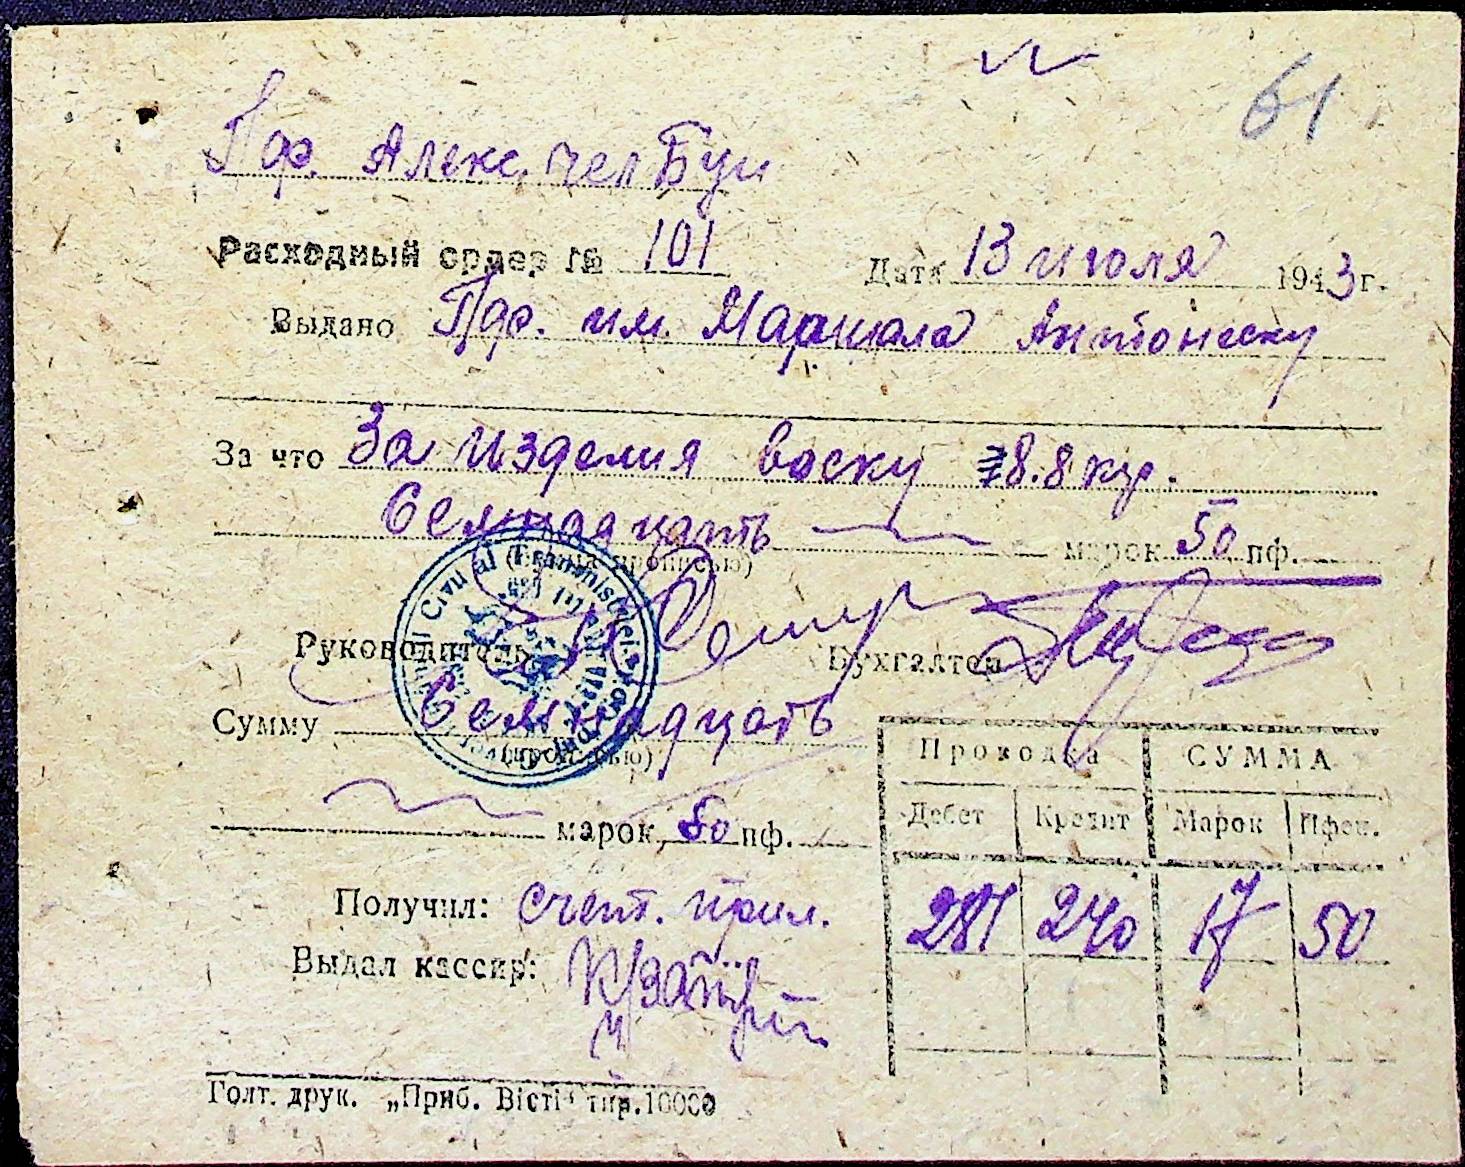 61
Пдр. Алекс, чел Буи
Расходный ордер № 101 Дата 13 июля 1943 г.
Выдано Пдр. им. Маршала Антонеску
За что За изделия воску 8.8 кгр.
Семнадцать марок 50 пф.
(сумма прописью)
Руководитель Бухгалтер
Сумму Семнадцать
(прописью)
марок, 50 пф.
Проводка СУММА
Дебет Кредит Марок Пфен.
281 240 17 50
Получил: счет. прил.
Выдал кассир:
Голт. друк. „Приб. Вісті" тир. 10000